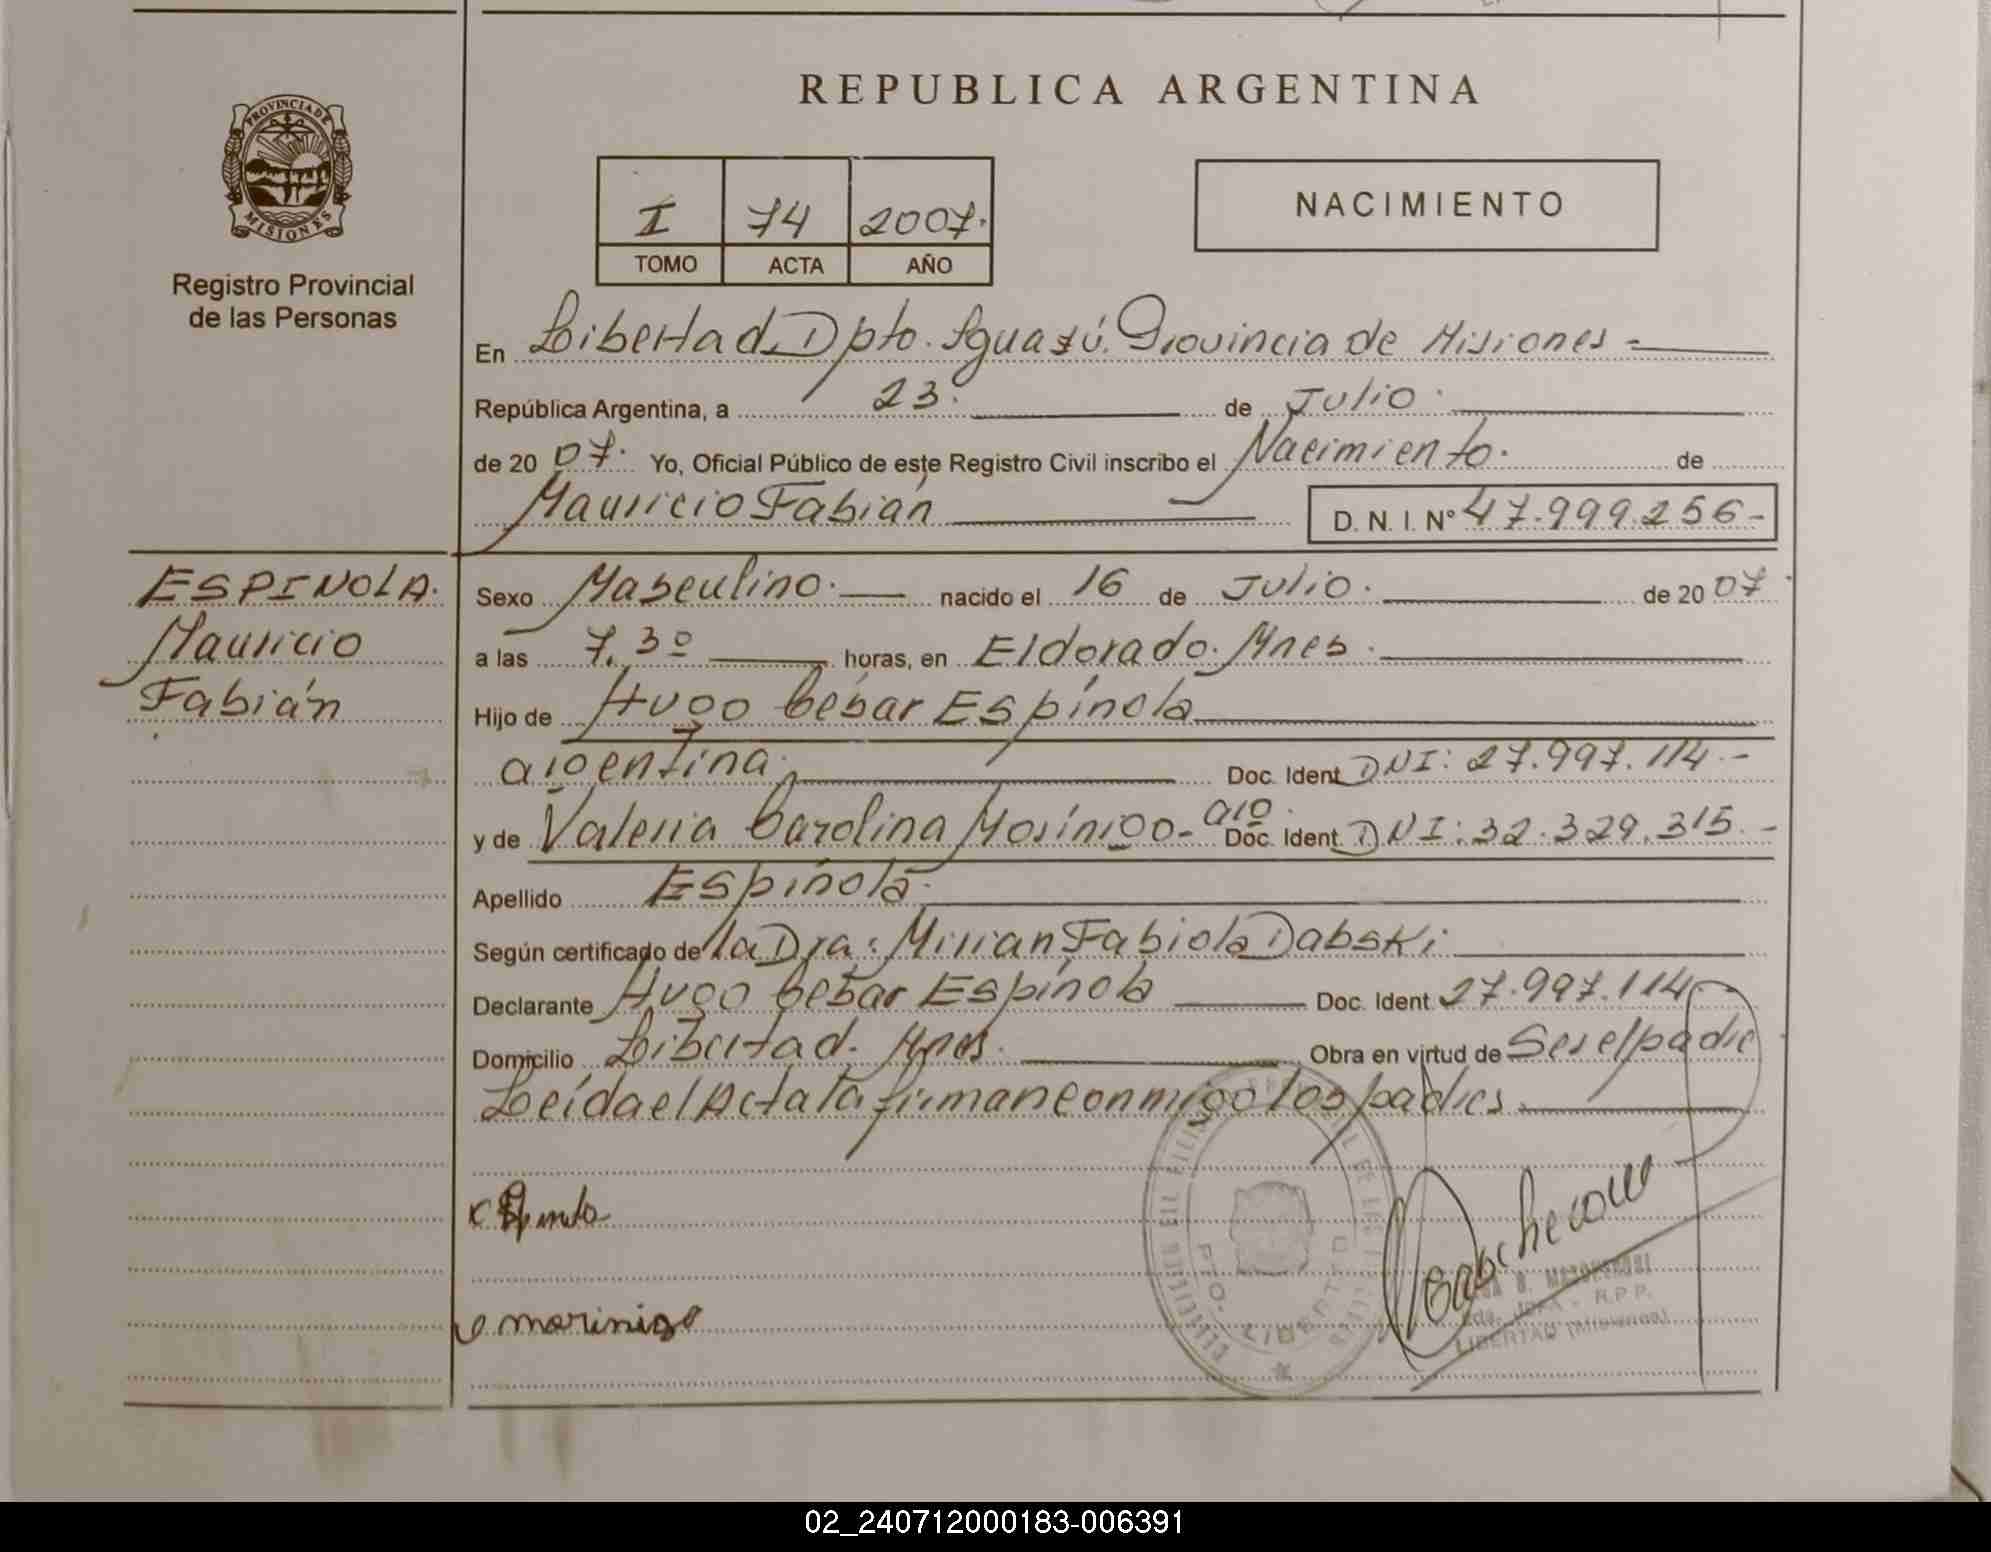 REPUBLICA ARGENTINA
PROVINCIA DE
MISIONES
Registro Provincial
de las Personas
I 74 2007.
TOMO ACTA AÑO
NACIMIENTO
En Libertad Dpto. Iguazú. Provincia de Misiones -
República Argentina, a 23. de Julio.
de 2007. Yo, Oficial Público de este Registro Civil inscribo el Nacimiento. de
Mauricio Fabián D. N. I. Nº 47.999.256-
ESPINOLA.
Mauricio
Fabián
Sexo Masculino. nacido el 16 de Julio. de 2007
a las 7.30 horas, en Eldorado. Mnes.
Hijo de Hugo César Espínola
argentina. Doc. Ident DNI: 27.997.114.-
y de Valeria Carolina Morínigo- arg. Doc. Ident. DNI: 32.329.315.-
Apellido Espínola.
Según certificado de la Dra: Mirian Fabiola Dabski
Declarante Hugo César Espínola Doc. Ident. 27.997.114-
Domicilio Libertad. Mnes. Obra en virtud de Ser el padre
Leída el Acta la firman conmigo los padres
morinigo
PTO. LIBERTAD
R.P.P.
LIBERTAD (Misiones)
02_240712000183-006391